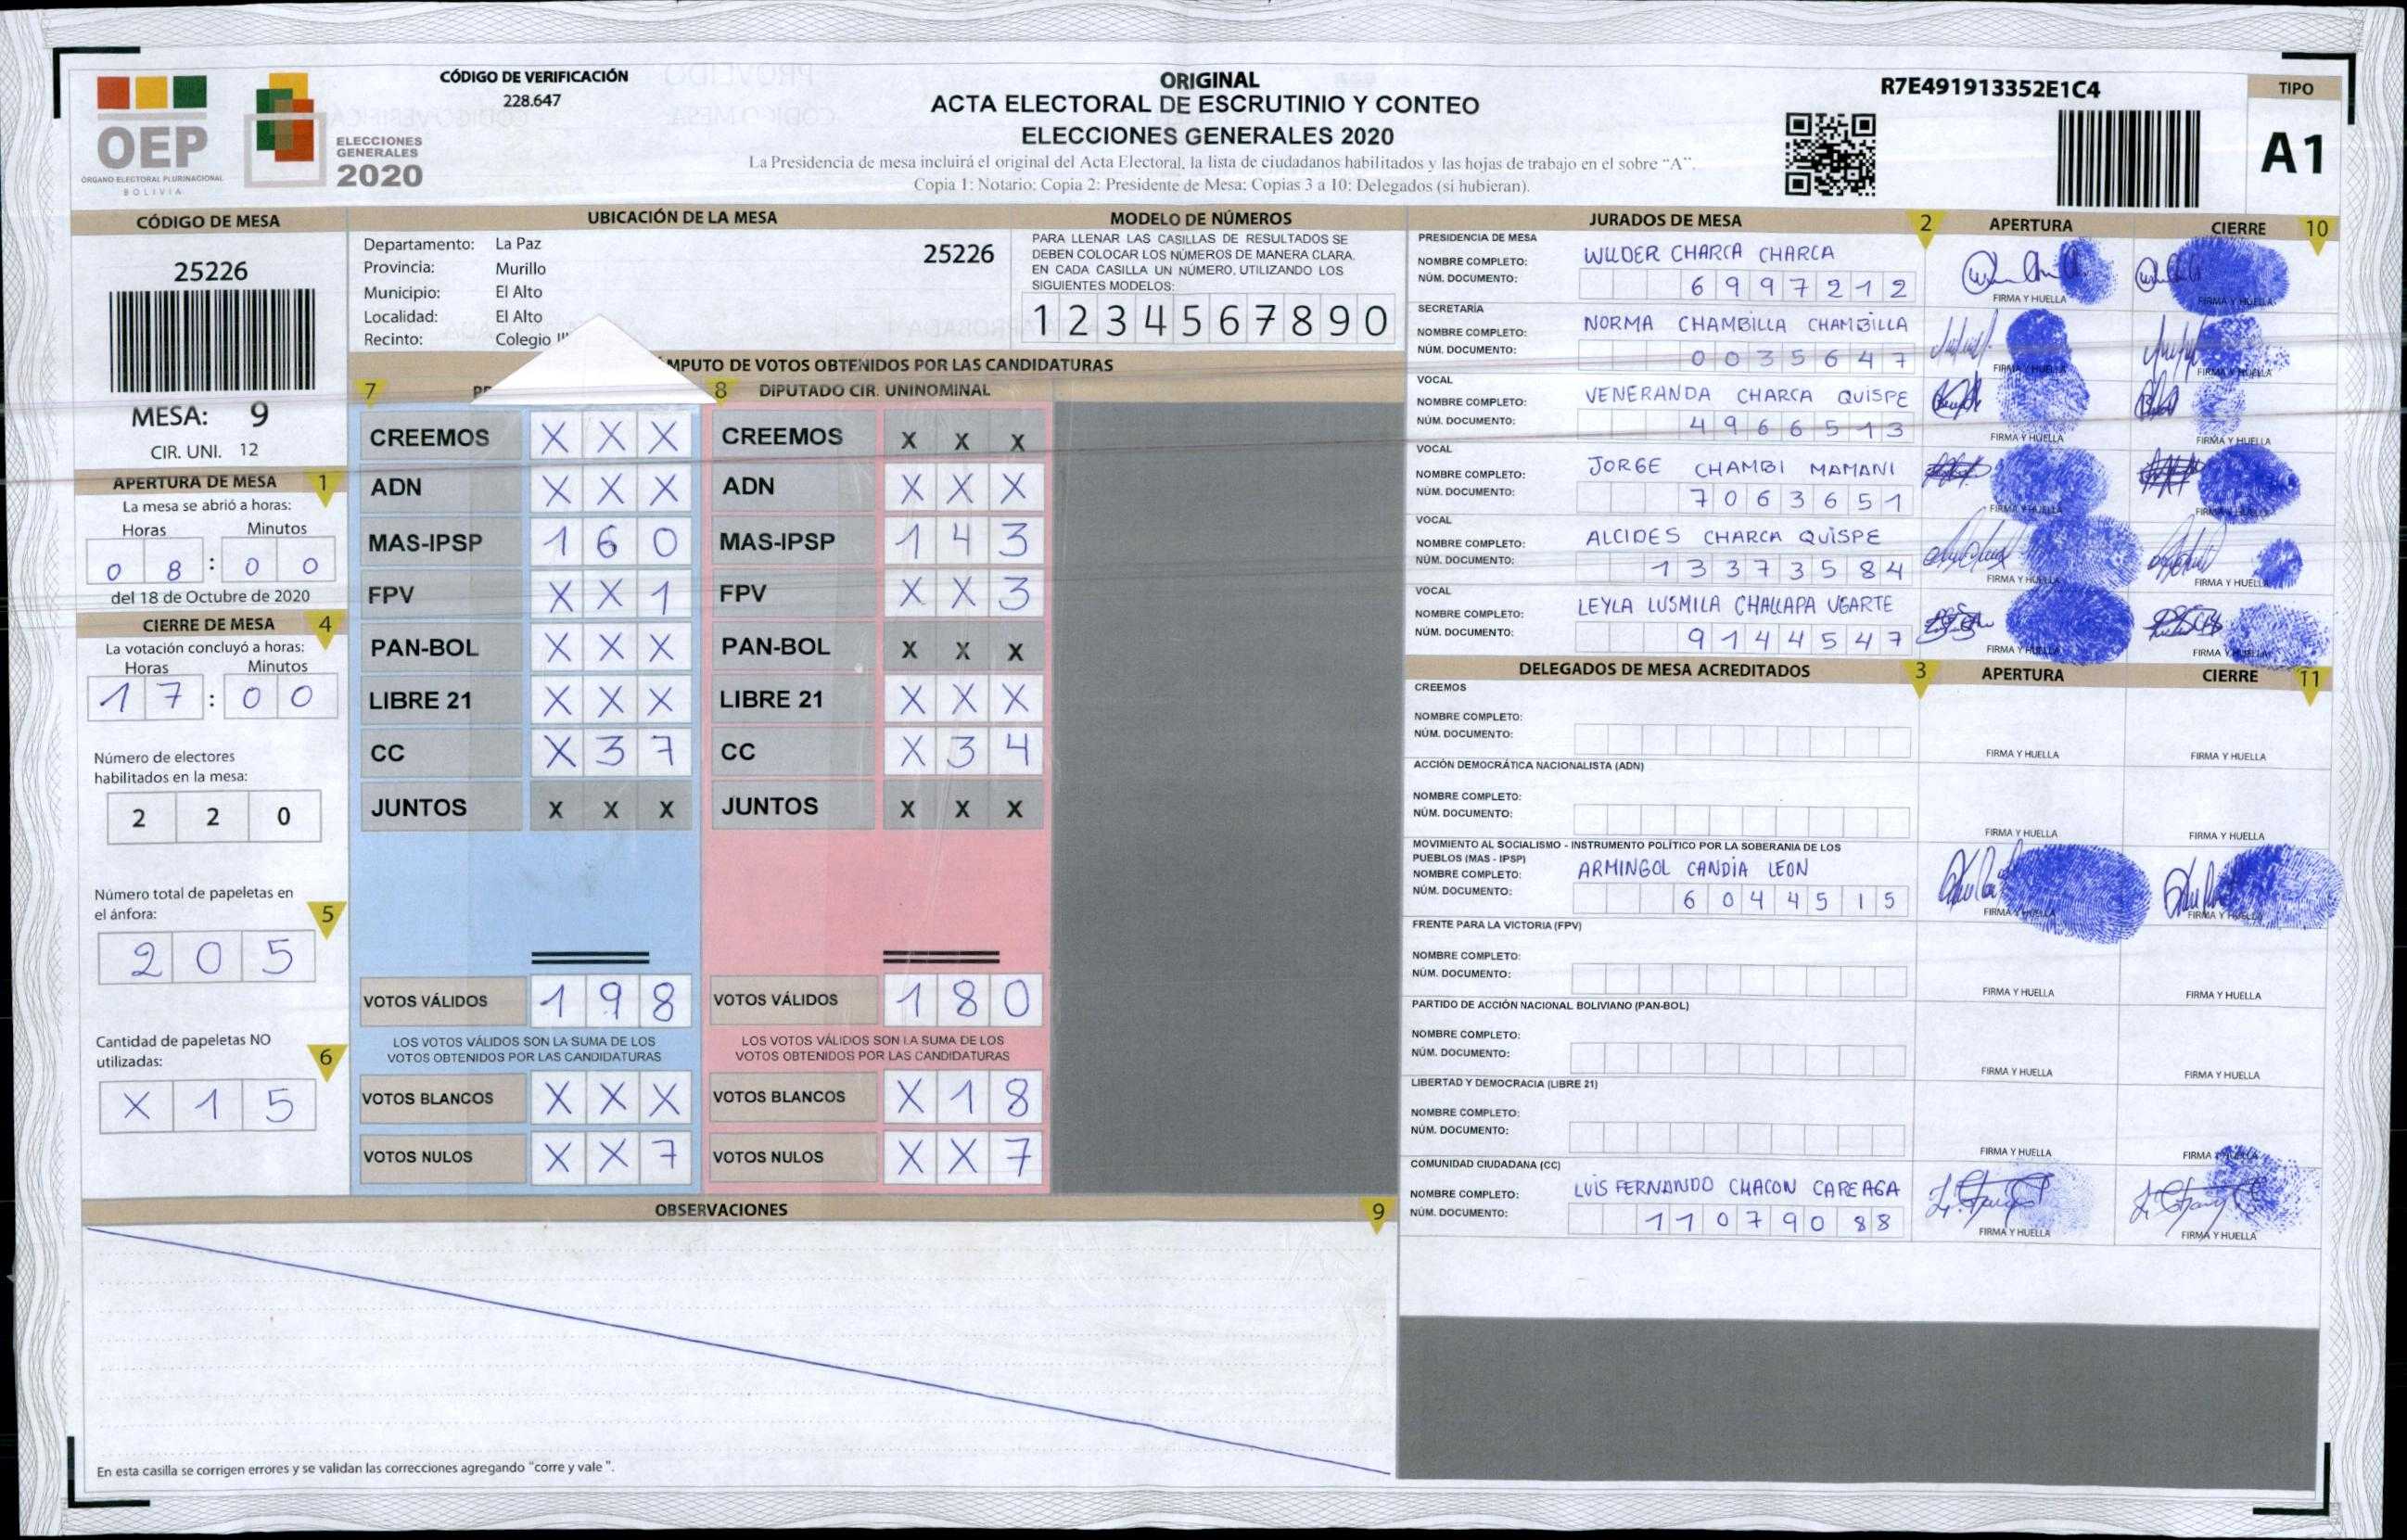 OEP
ÓRGANO ELECTORAL PLURINACIONAL
BOLIVIA
ELECCIONES
GENERALES
2020
CÓDIGO DE VERIFICACIÓN
228.647
ORIGINAL
ACTA ELECTORAL DE ESCRUTINIO Y CONTEO
ELECCIONES GENERALES 2020
La Presidencia de mesa incluirá el original del Acta Electoral, la lista de ciudadanos habilitados y las hojas de trabajo en el sobre "A".
Copia 1: Notario; Copia 2: Presidente de Mesa; Copias 3 a 10: Delegados (si hubieran).
R7E491913352E1C4
TIPO
A1
CÓDIGO DE MESA
25226
MESA: 9
CIR. UNI. 12
APERTURA DE MESA 1
La mesa se abrió a horas:
Horas Minutos
0 8 : 0 0
del 18 de Octubre de 2020
CIERRE DE MESA 4
La votación concluyó a horas:
Horas Minutos
1 7 : 0 0
Número de electores
habilitados en la mesa:
2 2 0
Número total de papeletas en
el ánfora: 5
2 0 5
Cantidad de papeletas NO
utilizadas: 6
X 1 5
UBICACIÓN DE LA MESA
Departamento: La Paz 25226
Provincia: Murillo
Municipio: El Alto
Localidad: El Alto
Recinto: Colegio
MODELO DE NÚMEROS
PARA LLENAR LAS CASILLAS DE RESULTADOS SE
DEBEN COLOCAR LOS NÚMEROS DE MANERA CLARA.
EN CADA CASILLA UN NÚMERO, UTILIZANDO LOS
SIGUIENTES MODELOS:
1 2 3 4 5 6 7 8 9 0
MPUTO DE VOTOS OBTENIDOS POR LAS CANDIDATURAS
7 8 DIPUTADO CIR. UNINOMINAL
CREEMOS X X X CREEMOS X X X
ADN X X X ADN X X X
MAS-IPSP 1 6 0 MAS-IPSP 1 4 3
FPV X X 1 FPV X X 3
PAN-BOL X X X PAN-BOL X X X
LIBRE 21 X X X LIBRE 21 X X X
CC X 3 7 CC X 3 4
JUNTOS X X X JUNTOS X X X
VOTOS VÁLIDOS 1 9 8 VOTOS VÁLIDOS 1 8 0
LOS VOTOS VÁLIDOS SON LA SUMA DE LOS LOS VOTOS VÁLIDOS SON LA SUMA DE LOS
VOTOS OBTENIDOS POR LAS CANDIDATURAS VOTOS OBTENIDOS POR LAS CANDIDATURAS
VOTOS BLANCOS X X X VOTOS BLANCOS X 1 8
VOTOS NULOS X X 7 VOTOS NULOS X X 7
OBSERVACIONES 9
En esta casilla se corrigen errores y se validan las correcciones agregando "corre y vale".
JURADOS DE MESA 2 APERTURA CIERRE 10
PRESIDENCIA DE MESA
NOMBRE COMPLETO: WILDER CHARCA CHARCA
NÚM. DOCUMENTO: 6 9 9 7 2 1 2
FIRMA Y HUELLA FIRMA Y HUELLA
SECRETARÍA
NOMBRE COMPLETO: NORMA CHAMBILLA CHAMBILLA
NÚM. DOCUMENTO: 0 0 3 5 6 4 7
FIRMA Y HUELLA FIRMA Y HUELLA
VOCAL
NOMBRE COMPLETO: VENERANDA CHARCA QUISPE
NÚM. DOCUMENTO: 4 9 6 6 5 1 3
FIRMA Y HUELLA FIRMA Y HUELLA
VOCAL
NOMBRE COMPLETO: JORGE CHAMBI MAMANI
NÚM. DOCUMENTO: 7 0 6 3 6 5 1
FIRMA Y HUELLA FIRMA Y HUELLA
VOCAL
NOMBRE COMPLETO: ALCIDES CHARCA QUISPE
NÚM. DOCUMENTO: 1 3 3 7 3 5 8 4
FIRMA Y HUELLA FIRMA Y HUELLA
VOCAL
NOMBRE COMPLETO: LEYLA LUSMILA CHALLAPA UGARTE
NÚM. DOCUMENTO: 9 1 4 4 5 4 7
FIRMA Y HUELLA FIRMA Y HUELLA
DELEGADOS DE MESA ACREDITADOS 3 APERTURA CIERRE 11
CREEMOS
NOMBRE COMPLETO:
NÚM. DOCUMENTO:
FIRMA Y HUELLA FIRMA Y HUELLA
ACCIÓN DEMOCRÁTICA NACIONALISTA (ADN)
NOMBRE COMPLETO:
NÚM. DOCUMENTO:
FIRMA Y HUELLA FIRMA Y HUELLA
MOVIMIENTO AL SOCIALISMO - INSTRUMENTO POLÍTICO POR LA SOBERANIA DE LOS
PUEBLOS (MAS - IPSP)
NOMBRE COMPLETO: ARMINGOL CANDIA LEON
NÚM. DOCUMENTO: 6 0 4 4 5 1 5
FIRMA Y HUELLA FIRMA Y HUELLA
FRENTE PARA LA VICTORIA (FPV)
NOMBRE COMPLETO:
NÚM. DOCUMENTO:
FIRMA Y HUELLA FIRMA Y HUELLA
PARTIDO DE ACCIÓN NACIONAL BOLIVIANO (PAN-BOL)
NOMBRE COMPLETO:
NÚM. DOCUMENTO:
FIRMA Y HUELLA FIRMA Y HUELLA
LIBERTAD Y DEMOCRACIA (LIBRE 21)
NOMBRE COMPLETO:
NÚM. DOCUMENTO:
FIRMA Y HUELLA FIRMA Y HUELLA
COMUNIDAD CIUDADANA (CC)
NOMBRE COMPLETO: LUIS FERNANDO CHACON CAREAGA
NÚM. DOCUMENTO: 1 1 0 7 9 0 8 8
FIRMA Y HUELLA FIRMA Y HUELLA